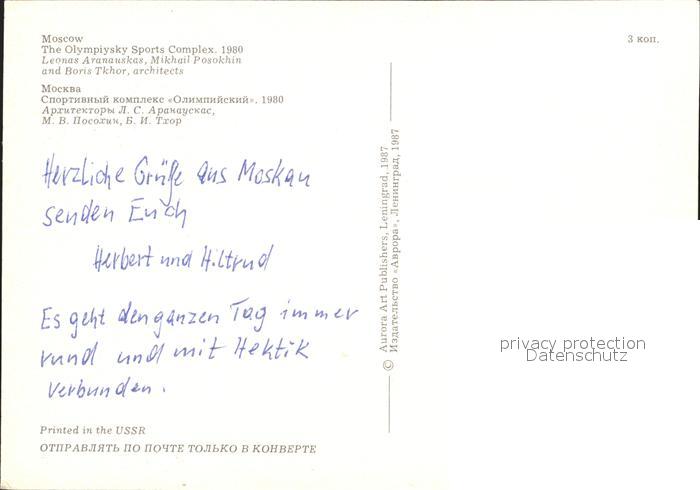 Moscow
The Olympiysky Sports Complex. 1980
Leonas Aranauskas, Mikhail Posokhin
and Boris Tkhor, architects
Москва
Спортивный комплекс «Олимпийский». 1980
Архитекторы Л. С. Аранаускас,
М. В. Посохин, Б. И. Тхор
3 коп.
Herzliche Grüße aus Moskau
senden Euch
Herbert und Hiltrud
Es geht den ganzen Tag immer
rund und mit Hektik
verbunden.
© Aurora Art Publishers, Leningrad, 1987
Издательство «Аврора», Ленинград, 1987
privacy protection
Datenschutz
Printed in the USSR
ОТПРАВЛЯТЬ ПО ПОЧТЕ ТОЛЬКО В КОНВЕРТЕ